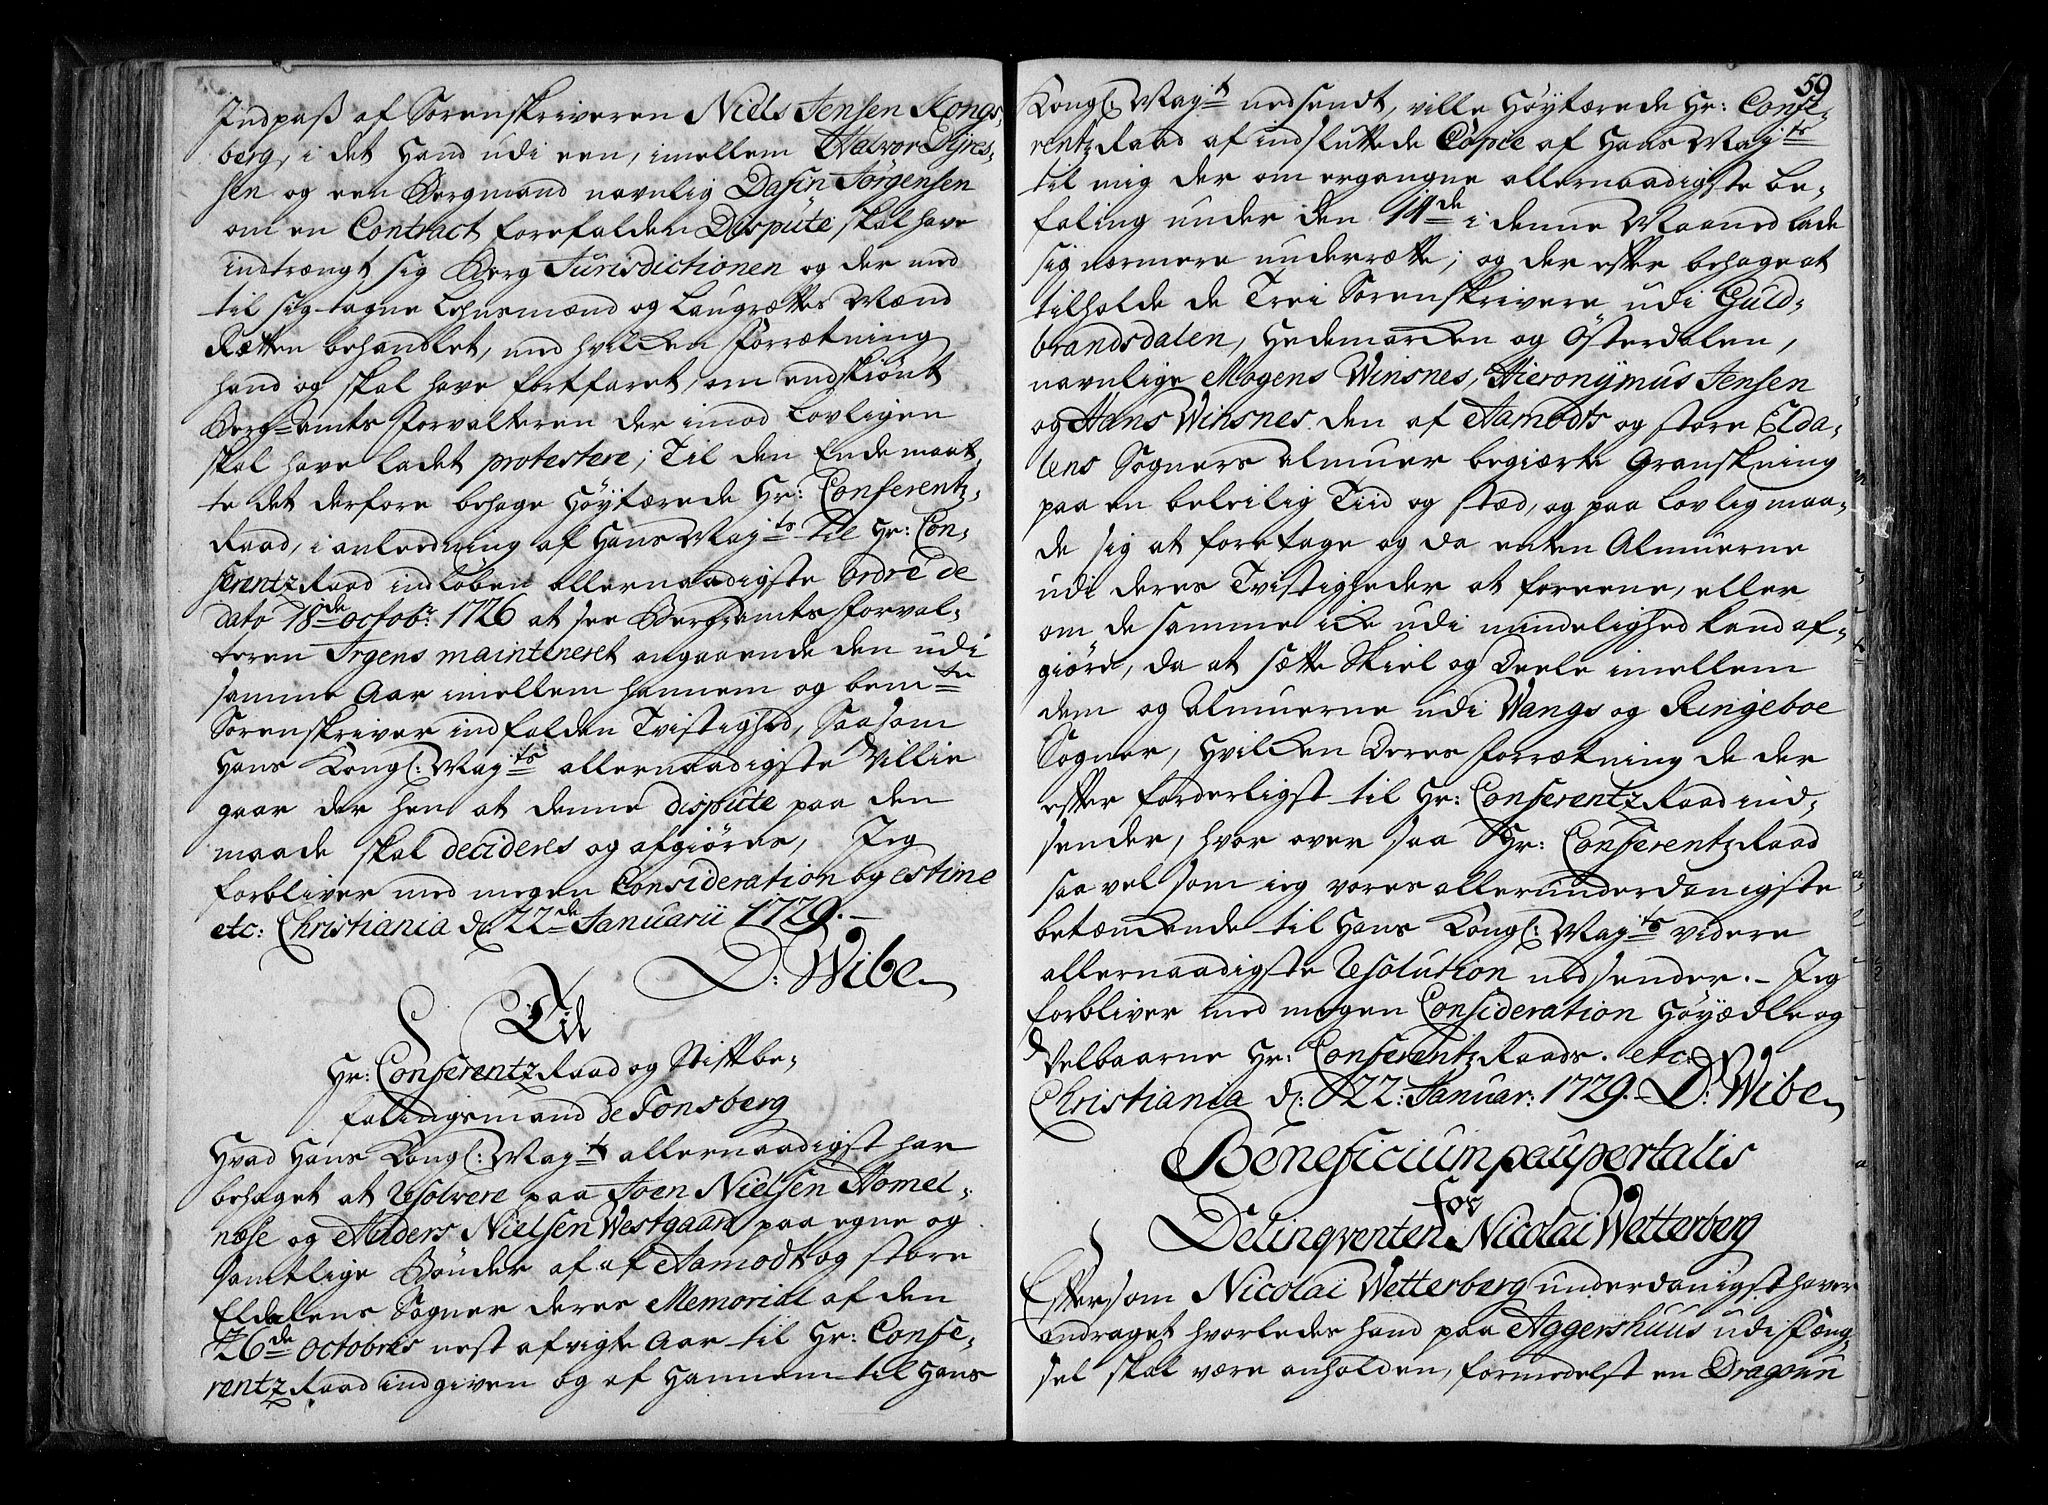 Indpaß af Sorenskriveren Niels Jensen Kongs-
berg, i det Hand udi een, imellem Halvor Syres-
sen og een Bergmand navnlig Dafin Jörgensen
om en Contract forefalden Dispute, skal have
indtrængt sig Berg Jurisdictionen og der med
til sig tagne Lehnsmænd og Laugrettes Mænd
Retten behandlet, med hvilken Forretning
hand og skal have fortfaret, om endskiönt
Berg-Amts Forvalteren der imod Lovligen
skal have ladet protestere; Til den Ende maat-
te det derfore behage Höytærede Hr: Conferentz-
Raad, i anledning af Hans Mayts til Hr: Con-
ferentz Raad indloben allernaadigste Ordre de
dato 18de octobr: 1726 at see Berg-Amts Forval-
teren Irgens maintineret angaaende den udi
samme Aar imellem hannem og bemte
Sorenskriver indfalden Tvistighed, Saasom
Hans Kongl: Mayts allernaadigste Villie
gaar der hen at denne dispute paa den
maade skal decideres og afgiöres, Jeg
forbliver med megen Consideration og estime
etc: Christiania d. 22de Januarii 1729.
D: Wibe
Til
Hr: Conferentz Raad og Stiftbe-
falingsmand de Tonsberg
Hvad Hans Kongl: Mayt allernaadigst har
behaget at Resolvere paa Joen Nielsen Homel-
næse og Anders Nielsen Westgaard paa egne og
samtlige Bönder af af Aamodt og store
Eldalens Sogner deres Memorial af den
26de octobris nest afvigte Aar til Hr: Confe-
rentz Raad indgiven og af Hannem til Hans
59
Kongl: Mayt nedsendt, ville Höytærede Hr: Confe-
rentz Raad af indsluttede Copie af Hans Mayts
til mig der om ergangne allernaadigste be-
faling under den 14de i denne Maaned lade
sig nærmere underrette; og der efter behage at
tilholde de Trei Sorenskrivere udi Guld-
brandsdalen, Hedemarken og Österdalen,
navnlige Mogens Winsnes, Hieronymus Jensen
og Hans Winsnes den af Aamodts og store Elda-
lens Sogners Almuer begiærte Granskning
paa en beleilig Tiid og stæd, og paa lovlig maa-
de sig at foretage og da enten Almuerne
udi deres Tvistigheder at foreene, eller
om de samme icke udi mindelighed kand af-
giöre, da at sette Skiel og Deele imellem
dem og Almuerne udi Wangs og Ringeboe
Sogner, Hvilcken Deres Forretning de der
efter forderligst til Hr: Conferentz Raad ind-
sender, hvor over saa Hr: Conferentz Raad
saa vel som ieg vores allerunderdanigste
betænckende til Hans Kongl: Mayts videre
allernaadigste Resolution nedsender. Jeg
forbliver med megen Consideration Höyædle og
Velbaarne Hr: Conferentz Raads. etc:
Christiania d: 22: Januar: 1729. D: Wibe
Beneficium paupertatis
for
Delinqventen Nicolai Wetterberg
Eftersom Nicolai Wetterberg underdanigst haver
andraget hvorledes hand paa Aggershuus udi Fæng-
sel skal være anholden, formedelst en Dragoun